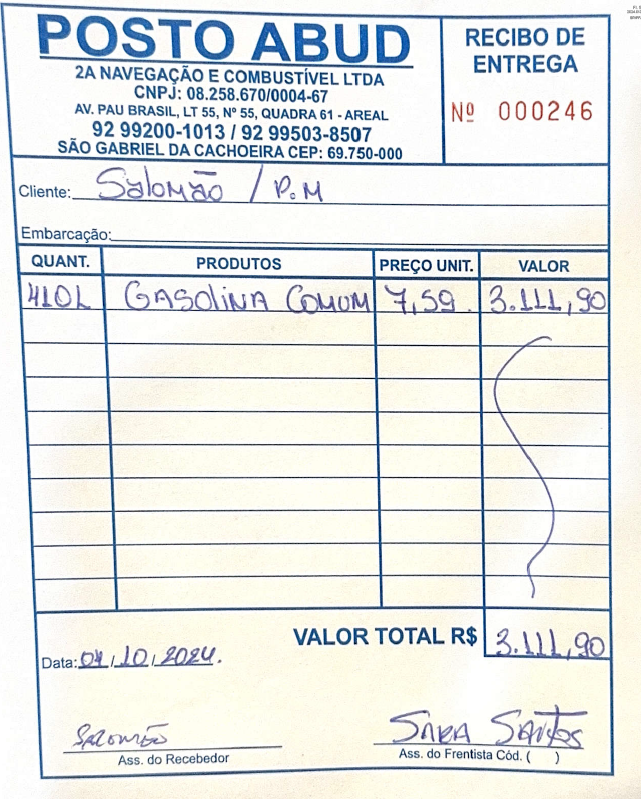 POSTO ABUD
2A NAVEGAÇÃO E COMBUSTÍVEL LTDA
CNPJ: 08.258.670/0004-67
AV. PAU BRASIL, LT 55, Nº 55, QUADRA 61 - AREAL
92 99200-1013 / 92 99503-8507
SÃO GABRIEL DA CACHOEIRA CEP: 69.750-000
RECIBO DE
ENTREGA
Nº 000246
Cliente: Salomão / P.M
Embarcação:
QUANT. PRODUTOS PREÇO UNIT. VALOR
410L GASOLINA COMUM 7,59 3.111,90
VALOR TOTAL R$ 3.111,90
Data: /10/2024.
SALOMÃO
Ass. do Recebedor
SARA SANTOS
Ass. do Frentista Cód. ( )